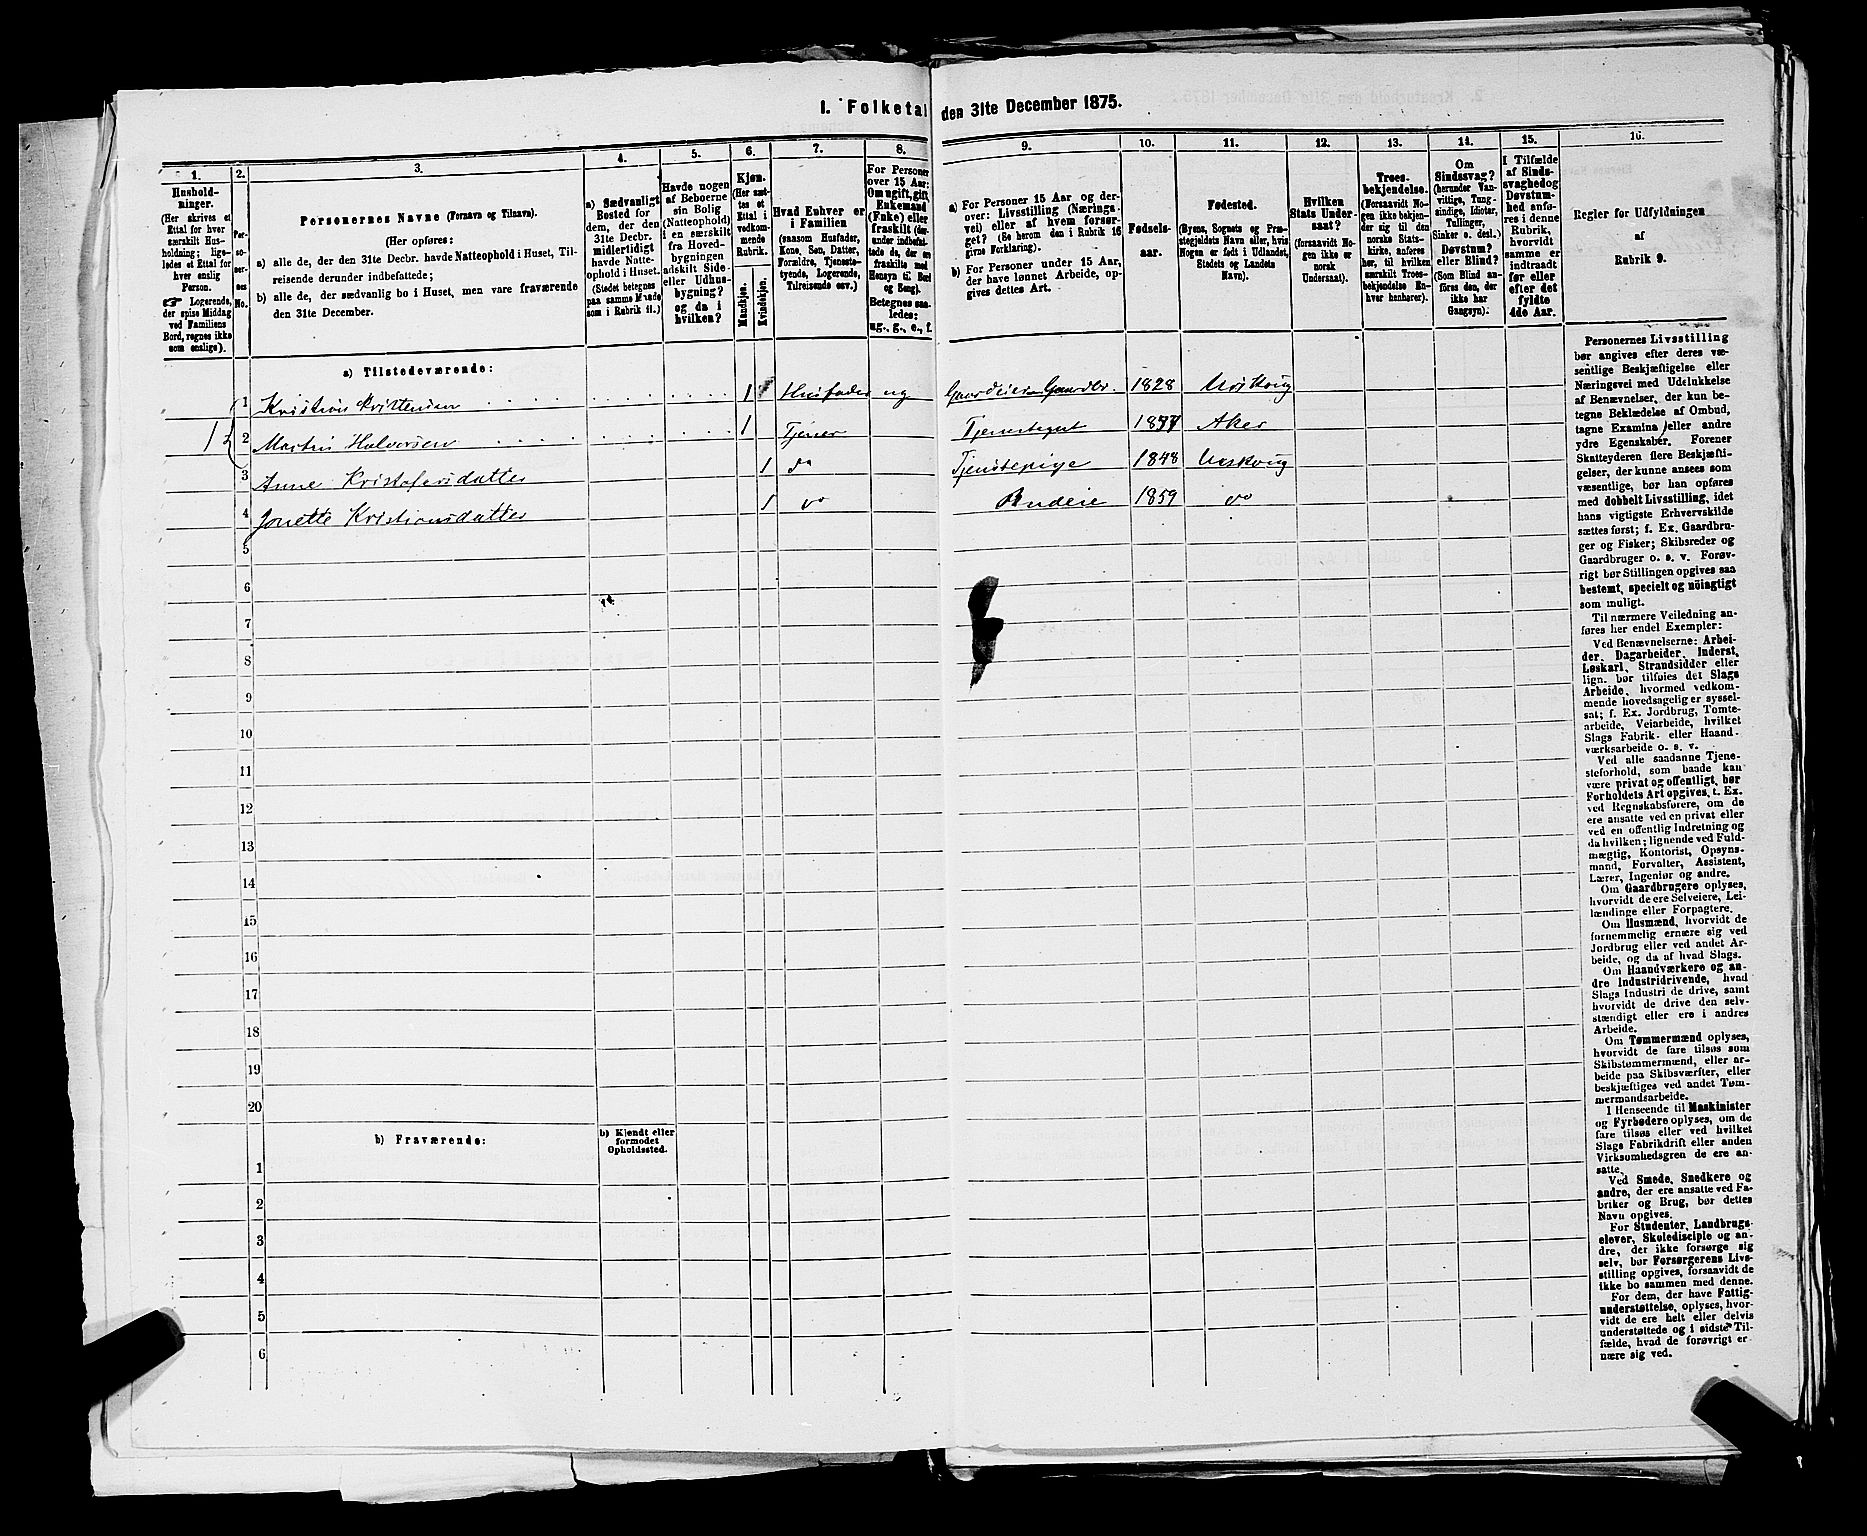 I. Folketal den 31te December 1875.
1.
Hushold-
ninger.
(Her skrives et
Ettal for hver
særskilt Hus-
holdning; lige-
ledes et Ettal for
hver enslig
Person.
☞ Logerende,
der spise Middag
ved Familiens
Bord, regnes ikke
som enslige).
2.
Per-
so-
ner-
nes
No.
3.
Personernes Navne (Fornavn og Tilnavn).
(Her opføres:
a) alle de, der den 31te Decbr. havde Natteophold i Huset, Til-
reisende derunder indbefattede;
b) alle de, der sædvanlig bo i Huset, men vare fraværende
den 31te December.
4.
a) Sædvanligt
Bosted for
dem, der den
31te Decbr.
midlertidigt
havde Natte-
ophold i Huset.
(Stedet betegnes
paa samme Maade
som i Rubrik 11.)
5.
Havde nogen
af Beboerne
sin Bolig
(Natteophold)
i en særskilt
fra Hoved-
bygningen
adskilt Side-
eller Udhus-
bygning?
og da i
hvilken?
6.
Kjøn.
(Her sæt-
tes et
Ettal i
vedkom-
mende
Rubrik.
Mandkjøn.
Kvindekjøn.
7.
Hvad Enhver er
i Familien
(saasom Husfader,
Kone, Søn, Datter,
Forældre, Tjeneste-
tyende, Logerende,
Tilreisende osv.)
8.
For Personer
over 15 Aar:
Om ugift, gift,
Enkemand
(Enke) eller
fraskilt (der-
under indbefat-
tede de, der ere
fraskilte med
Hensyn til Bord
og Seng).
Betegnes saa-
ledes:
ug., g., e., f.
9.
a) For Personer 15 Aar og der-
over: Livsstilling (Nærings-
vei) eller af hvem forsør-
get? (Se herom den i Rubrik 16
givne Forklaring).
b) For Personer under 15 Aar,
der have lønnet Arbeide, op-
gives dettes Art.
10.
Fødsels-
aar.
11.
Fødested.
(Byens, Sognets og Præ-
stegjeldets Navn eller, hvis
Nogen er født i Udlandet,
Stedets og Landets
Navn).
12.
Hvilken
Stats Under-
saat?
(forsaavidt No-
gen ikke er
norsk
Undersaat).
13.
Troes-
bekjendelse.
(Forsaavidt No-
gen ikke bekjen-
der sig til den
norske Stats-
kirke, anføres
her, til hvilken
særskilt Troes-
bekjendelse En-
hver henhører).
14.
Om
Sindssvag?
(herunder Van-
vittige, Tung-
sindige, Idioter,
Tullinger,
Sinker o. desl.)
Døvstum?
eller Blind?
(Som Blind an-
føres den, der
ikke har
Gangsyn).
15.
I Tilfælde
af Sinds-
svaghed og
Døvstum-
hed anfø-
res i denne
Rubrik,
hvorvidt
samme er
indtraadt
før eller
efter det
fyldte
4de Aar.
16.
Regler for Udfyldningen
af
Rubrik 9.
a) Tilstedeværende:
1 Kristian Kristensen 1 Husfader ug Gaardeier Gaardbr. 1828 Urskoug
1 2 Martin Halvorsen 1 Tjener Tjenestegut 1857 Aker
3 Anne Kristofersdatter 1 do Tjenestepige 1848 Urskoug
4 Jonette Kristiansdatter 1 do Budeie 1859 do
5
6
7
8
9
10
11
12
13
14
15
16
17
18
19
20
b) Fraværende:
b) Kjendt eller
formodet
Opholdssted.
1
2
3
4
5
6
Personernes Livsstilling
bør angives efter deres væ-
sentlige Beskjæftigelse eller
Næringsvei med Udelukkelse
af Benævnelser, der kun be-
tegne Beklædelse af Ombud,
tagne Examina eller andre
ydre Egenskaber. Forener
Skatteyderen flere Beskjæfti-
gelser, der kunne ansees som
væsentlige, bør han opføres
med dobbelt Livsstilling, idet
hans vigtigste Erhvervskilde
sættes først; f. Ex. Gaardbru-
ger og Fisker; Skibsreder og
Gaardbruger o. s. v. Forøv-
rigt bør Stillingen opgives saa
bestemt, specielt og nöiagtigt
som muligt.
Til nærmere Veiledning an-
føres her endel Exempler:
Ved Benævnelserne: Arbei-
der, Dagarbeider, Inderst,
Løskarl, Strandsidder eller
lign. bør tilføies det Slags
Arbeide, hvormed vedkom-
mende hovedsagelig er syssel-
sat; f. Ex. Jordbrug, Tomte-
arbeide, Veiarbeide, hvilket
Slags Fabrik- eller Haand-
værksarbeide o. s. v.
Ved alle saadanne Tjene-
steforhold, som baade kan
være privat og offentligt, bør
Forholdets Art opgives, t. Ex.
ved Regnskabsførere, om de
ere ansatte ved en privat eller
ved en offentlig Indretning og
da hvilken; lignende ved Fuld-
mægtig, Kontorist, Opsyns-
mand, Forvalter, Assistent,
Lærer, Ingeniør og andre.
Om Gaardbrugere oplyses,
hvorvidt de ere Selveiere, Lei-
lændinge eller Forpagtere.
Om Husmænd, hvorvidt de
fornemmelig ernære sig ved
Jordbrug eller ved andet Ar-
beide, og da af hvad Slags.
Om Haandværkere og an-
dre Industridrivende, hvad
Slags Industri de drive, samt
hvorvidt de drive den selv-
stændigt eller ere i andres
Arbeide.
Om Tømmermænd oplyses,
hvorvidt de fare tilsøs som
Skibstømmermænd, eller ar-
beide paa Skibsværfter, eller
beskjæftiges ved andet Tøm-
mermandsarbeide.
I Henseende til Maskinister
og Fyrbødere oplyses, om de
fare tilsøs eller ved hvilket
Slags Fabrikdrift eller anden
Virksomhedsgren de ere an-
satte.
Ved Smede, Snedkere og
andre, der ere ansatte ved Fa-
briker og Brug, bør dettes
Navn opgives.
For Studenter, Landbrugs-
elever, Skoledisciple og an-
dre, der ikke forsørge sig
selv, bør Forsørgerens Livs-
stilling opgives, forsaavidt de
ikke bo sammen med denne.
For dem, der have Fattig-
understøttelse, oplyses, hvor-
vidt de ere helt eller delvis
understøttede og i sidste Til-
fælde, hvad de forøvrigt er-
nære sig ved.